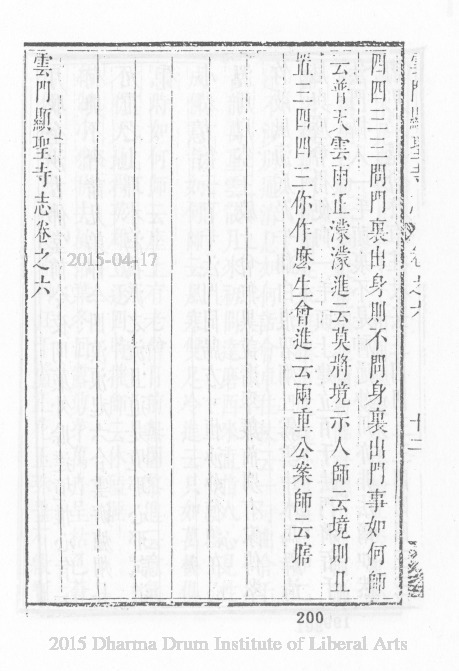 雲門顯聖寺志 卷之六 十二
四四三三問門裏出身則不問身裏出門事如何師
云普天雲雨正濛濛進云莫將境示人師云境則且
置三四四三你作麽生會進云兩重公案師云瞎
雲門顯聖寺志卷之六
2015-04-17
200
2015 Dharma Drum Institute of Liberal Arts